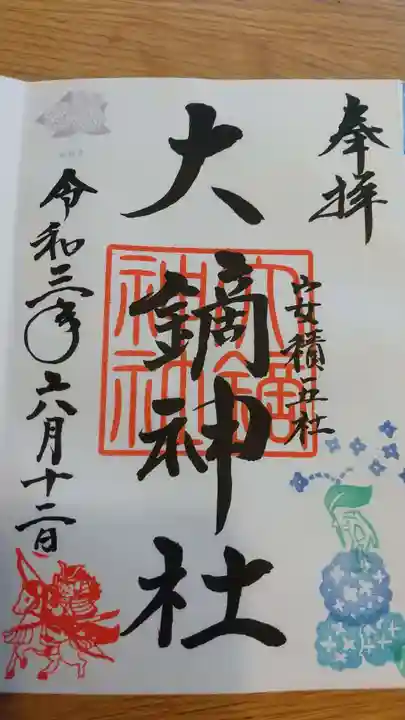 奉拝
安積五社
大鏑神社
大鏑神社
令和三年六月十二日